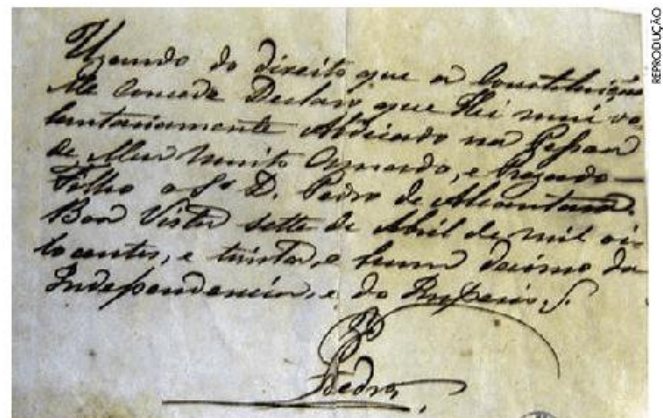 Uzando do direito que a Constituição
Me Concede Declaro que Hei mui vo
luntariamente Abdicado na Pessoa
de Meu Muito Amado, e Prezado
Filho o Sr. D. Pedro de Alcantara.
Boa Vista sette de Abril de mil oi
tocentos, e trinta, e hum decimo da
Independencia, e do Imperio.
Pedro
REPRODUÇÃO